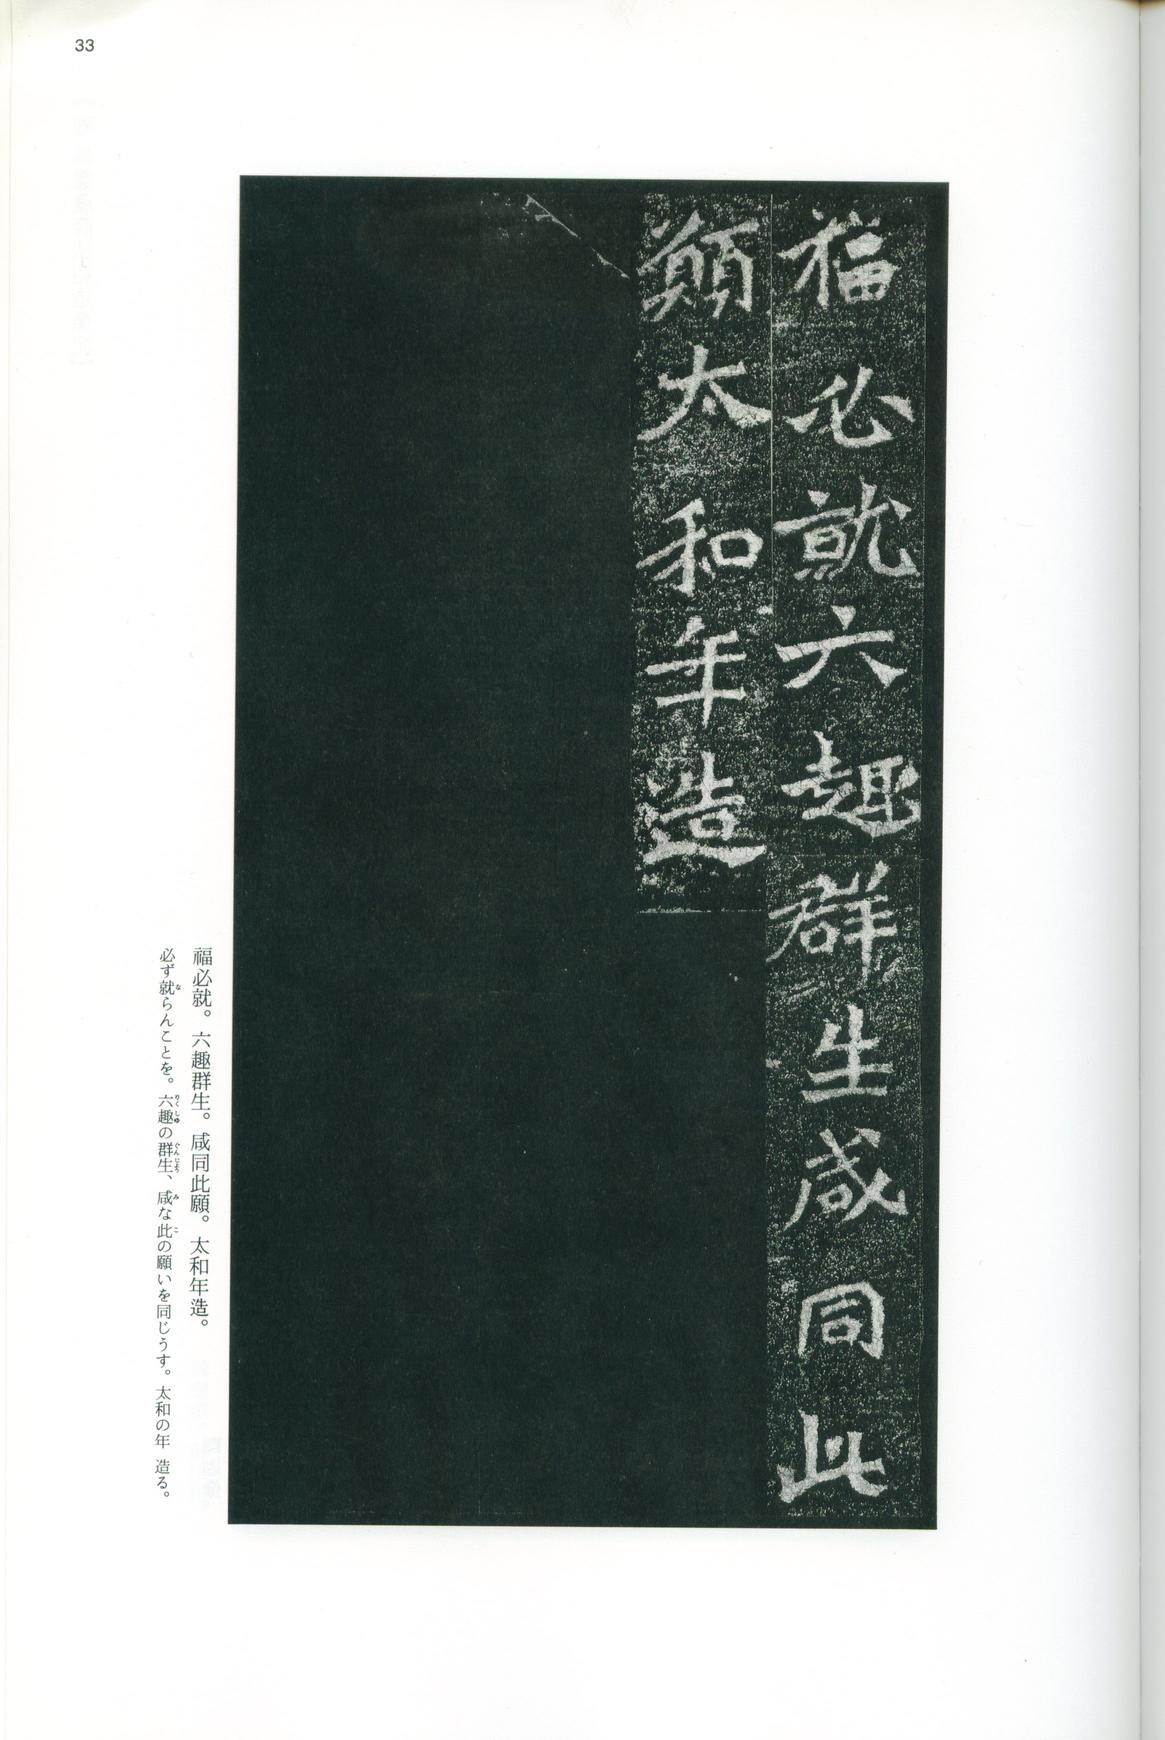 33
福必就六趣群生咸同此
願太和年造
福必就。六趣群生。咸同此願。太和年造。
必ず就らんことを。六趣の群生、咸な此の願いを同じうす。太和の年 造る。